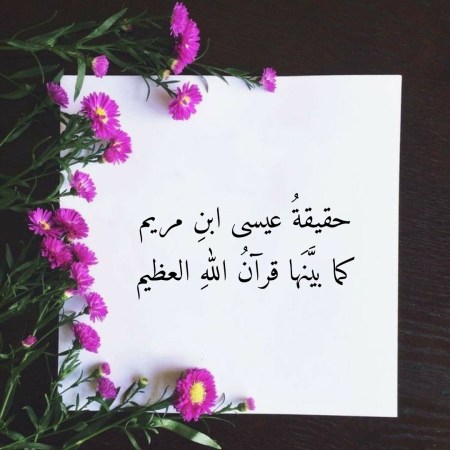 حقيقةُ عيسى ابنِ مريم
كما بيَّنَها قرآنُ اللهِ العظيم